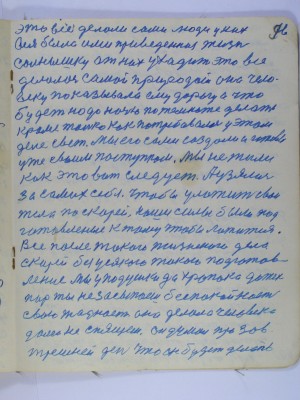 это все делали сами люди у них
была ими приведенная жизнь
солнышку от нах уходить это все
делалось самой природой она чело-
веку показывала ему дорогу а что
будет надо ночью потемноте делать
кроме только как потребовался у этом
деле свет. Мы его сами создали и
уже своим поступком. Мы не жили
как это вот следует. Мы взялись
за самих себя. Чтобы уложить свои
тела поскорей, наши силы были под
готовленные к тому чтобы ложится.
Все после такого жизненного дела
скорей без всякого такого подготов-
ление мы у подушку да храпака даже
пар ты не засыпаем беспокойност
свою жадност она делала человека
долго не спящим. Он думал про зав
трешней ден что он будет делать